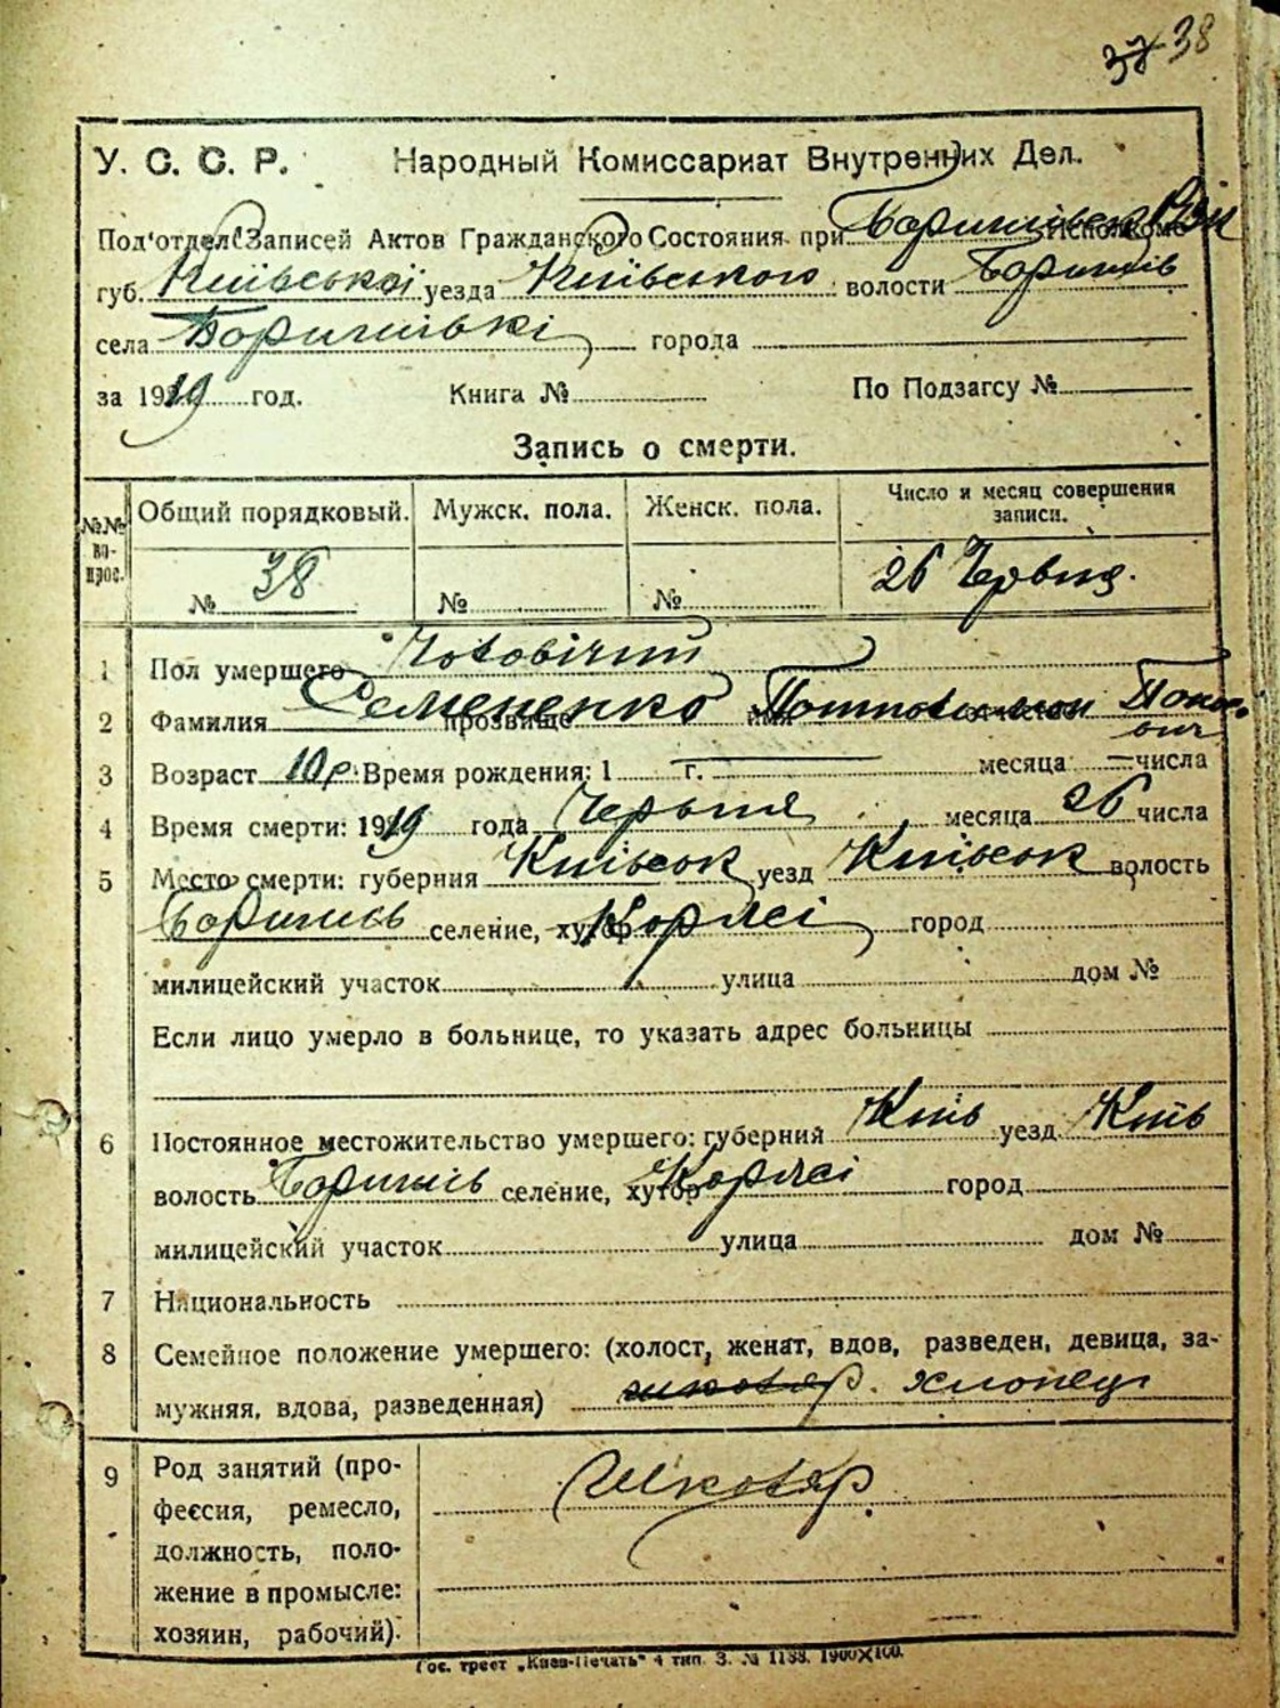 37 38
У. С. С. Р. Народный Комиссариат Внутренних Дел.
Под'отдел Записей Актов Гражданского Состояния при
губ. Київської уезда Київського волости Боришпів
села Боришпількі города
за 1919 год. Книга № По Подзагсу №
Запись о смерти.
№№ во-прос. Общий порядковый. Мужск. пола. Женск. пола. Число и месяц совершения записи.
№ 38 № № 26 Червня.
1 Пол умершего Чоловічий
2 Фамилия Семененко прозвище имя
3 Возраст 10 р. Время рождения: 1 г. — месяца — числа
4 Время смерти: 1919 года Червня месяца 26 числа
5 Место смерти: губерния Київськ уезд Київськ волость
селение, хутор город
милицейский участок улица дом №
Если лицо умерло в больнице, то указать адрес больницы
6 Постоянное местожительство умершего: губерний Київ уезд Київ
волость селение, хутор город
милицейский участок улица дом №
7 Национальность
8 Семейное положение умершего: (холост, женат, вдов, разведен, девица, за-
мужняя, вдова, разведенная) школяр. хлопець
9 Род занятий (про- Школяр.
фессия, ремесло,
должность, поло-
жение в промысле:
хозяин, рабочий).
Гос. трест „Киев-Печать" 4 тип. З. № 1133. 1900X100.